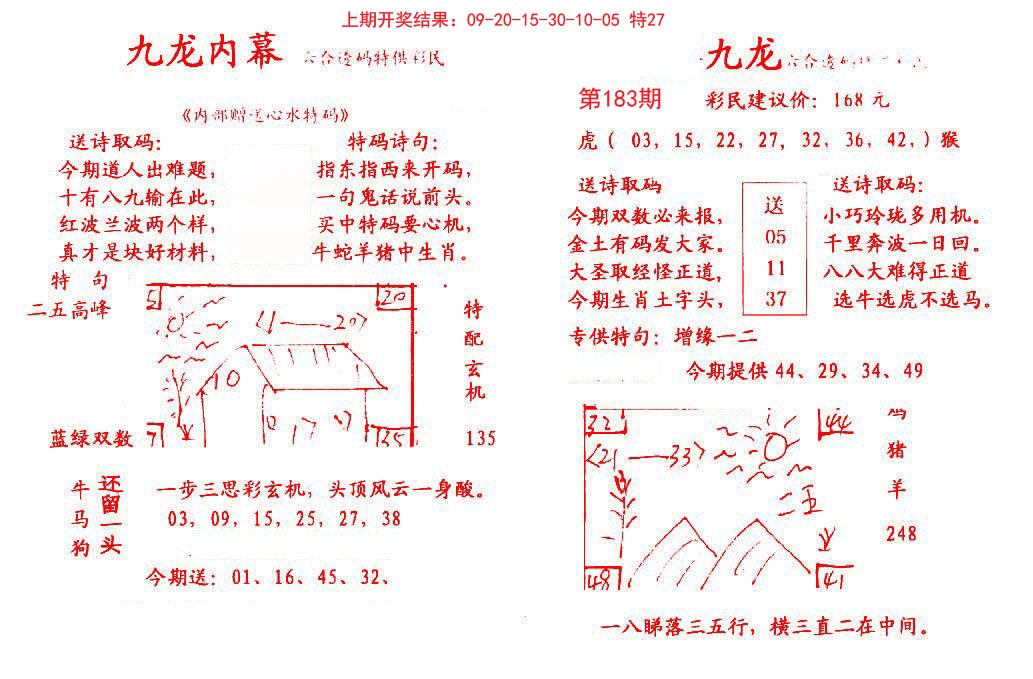 上期开奖结果：09-20-15-30-10-05 特27
九龙内幕 六合透码特供彩民
《内部赠送心水特码》
送诗取码：
今期道人出难题，
十有八九输在此，
红波兰波两个样，
真才是块好材料，
特码诗句：
指东指西来开码，
一句鬼话说前头。
买中特码要心机，
牛蛇羊猪中生肖。
特 句
二五高峰
蓝绿双数
5
20
(1——20)
10
7
35
特
配
玄
机
135
牛
马
狗
还
留
一
头
一步三思彩玄机，头顶风云一身酸。
03，09，15，25，27，38
今期送：01、16、45、32、
九龙
第183期
彩民建议价：168 元
虎（ 03，15，22，27，32，36，42，）猴
送诗取码
今期双数必来报，
金土有码发大家。
大圣取经怪正道，
今期生肖土字头，
送
05
11
37
送诗取码：
小巧玲珑多用机。
千里奔波一日回。
八八大难得正道
选牛选虎不选马。
专供特句：增缘一二
今期提供 44、29、34、49
32
44
(21——33)
二五
48
41
鸡
猪
羊
248
一八睇落三五行，横三直二在中间。